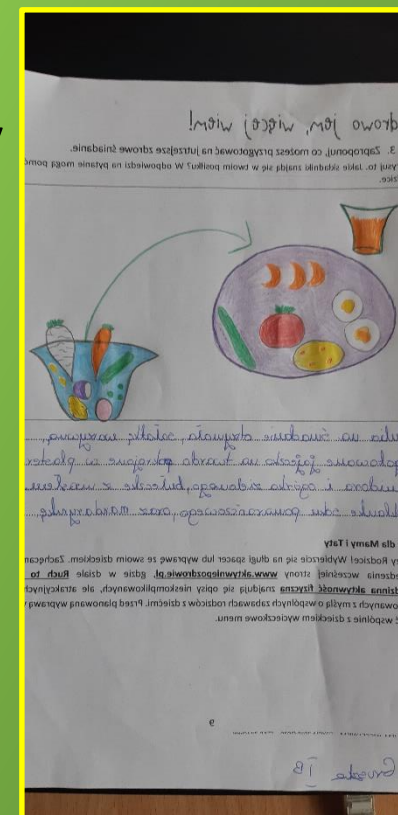 drowo jem, więcej wiem!
3. Zaproponuj, co możesz przygotować na jutrzejsze zdrowe śniadanie.
ysuj to. Jakie składniki znajdą się w twoim posiłku? W odpowiedzi na pytanie mogą pomó
zice.
na śniadanie otrzymała sałatkę warzywną,
gotowane jajeczko na twardo pokrojone w plaster
midora i ogórka zielonego, bułeczkę z masłem
soku pomarańczowego, oraz mandarynkę.
dla Mamy i Taty
Rodzice! Wybierzcie się na długi spacer lub wyprawę ze swoim dzieckiem. Zachęcam
edzenia wcześniej strony www.aktywniepozdrowie.pl, gdzie w dziale Ruch to
dzinna aktywność fizyczna znajdują się opisy nieskomplikowanych, ale atrakcyjnych
owanych z myślą o wspólnych zabawach rodziców z dziećmi. Przed planowaną wyprawą
ć wspólnie z dzieckiem wycieczkowe menu.
9
IB